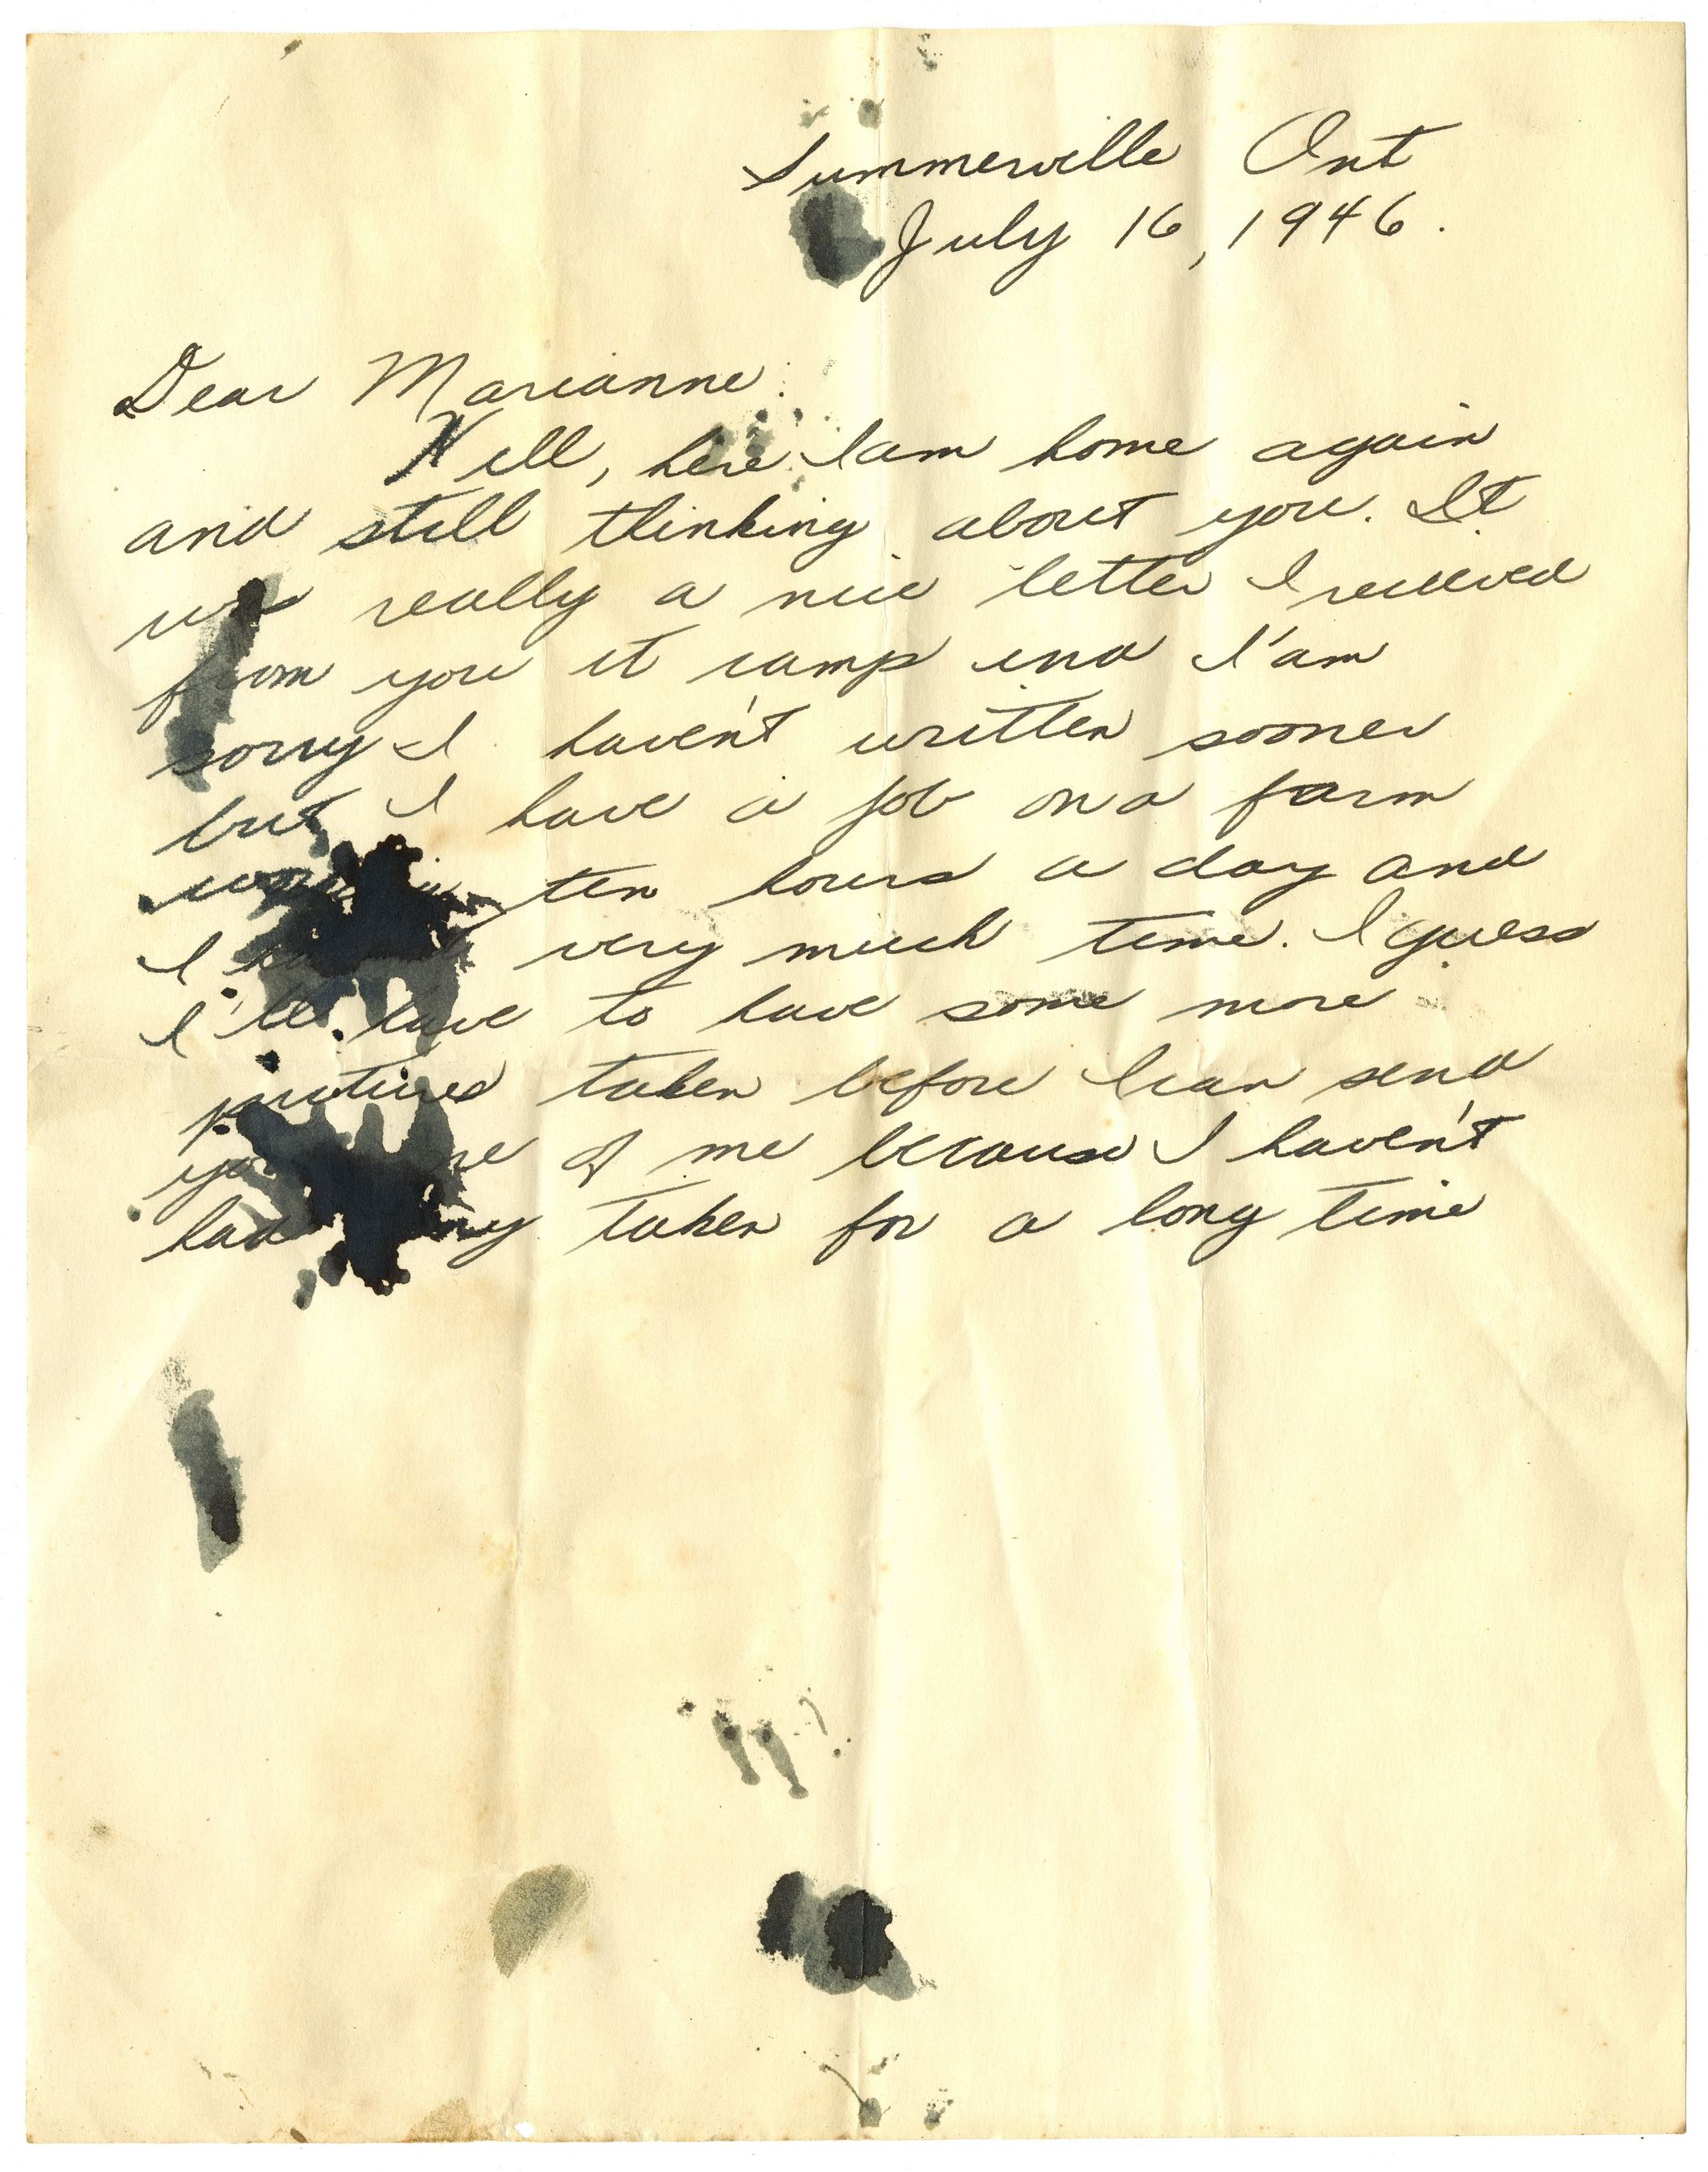 Summerville Ont
July 16, 1946.
Dear Marianne:
Well, here I am home again
and still thinking about you. It
was really a nice letter I received
from you at camp and I'am
sorry I haven't written sooner
but I have a job on a farm
ten hours a day and
I very much time. I guess
I'll have to have some more
pictures taken before I can send
of me because I haven't
had any taken for a long time